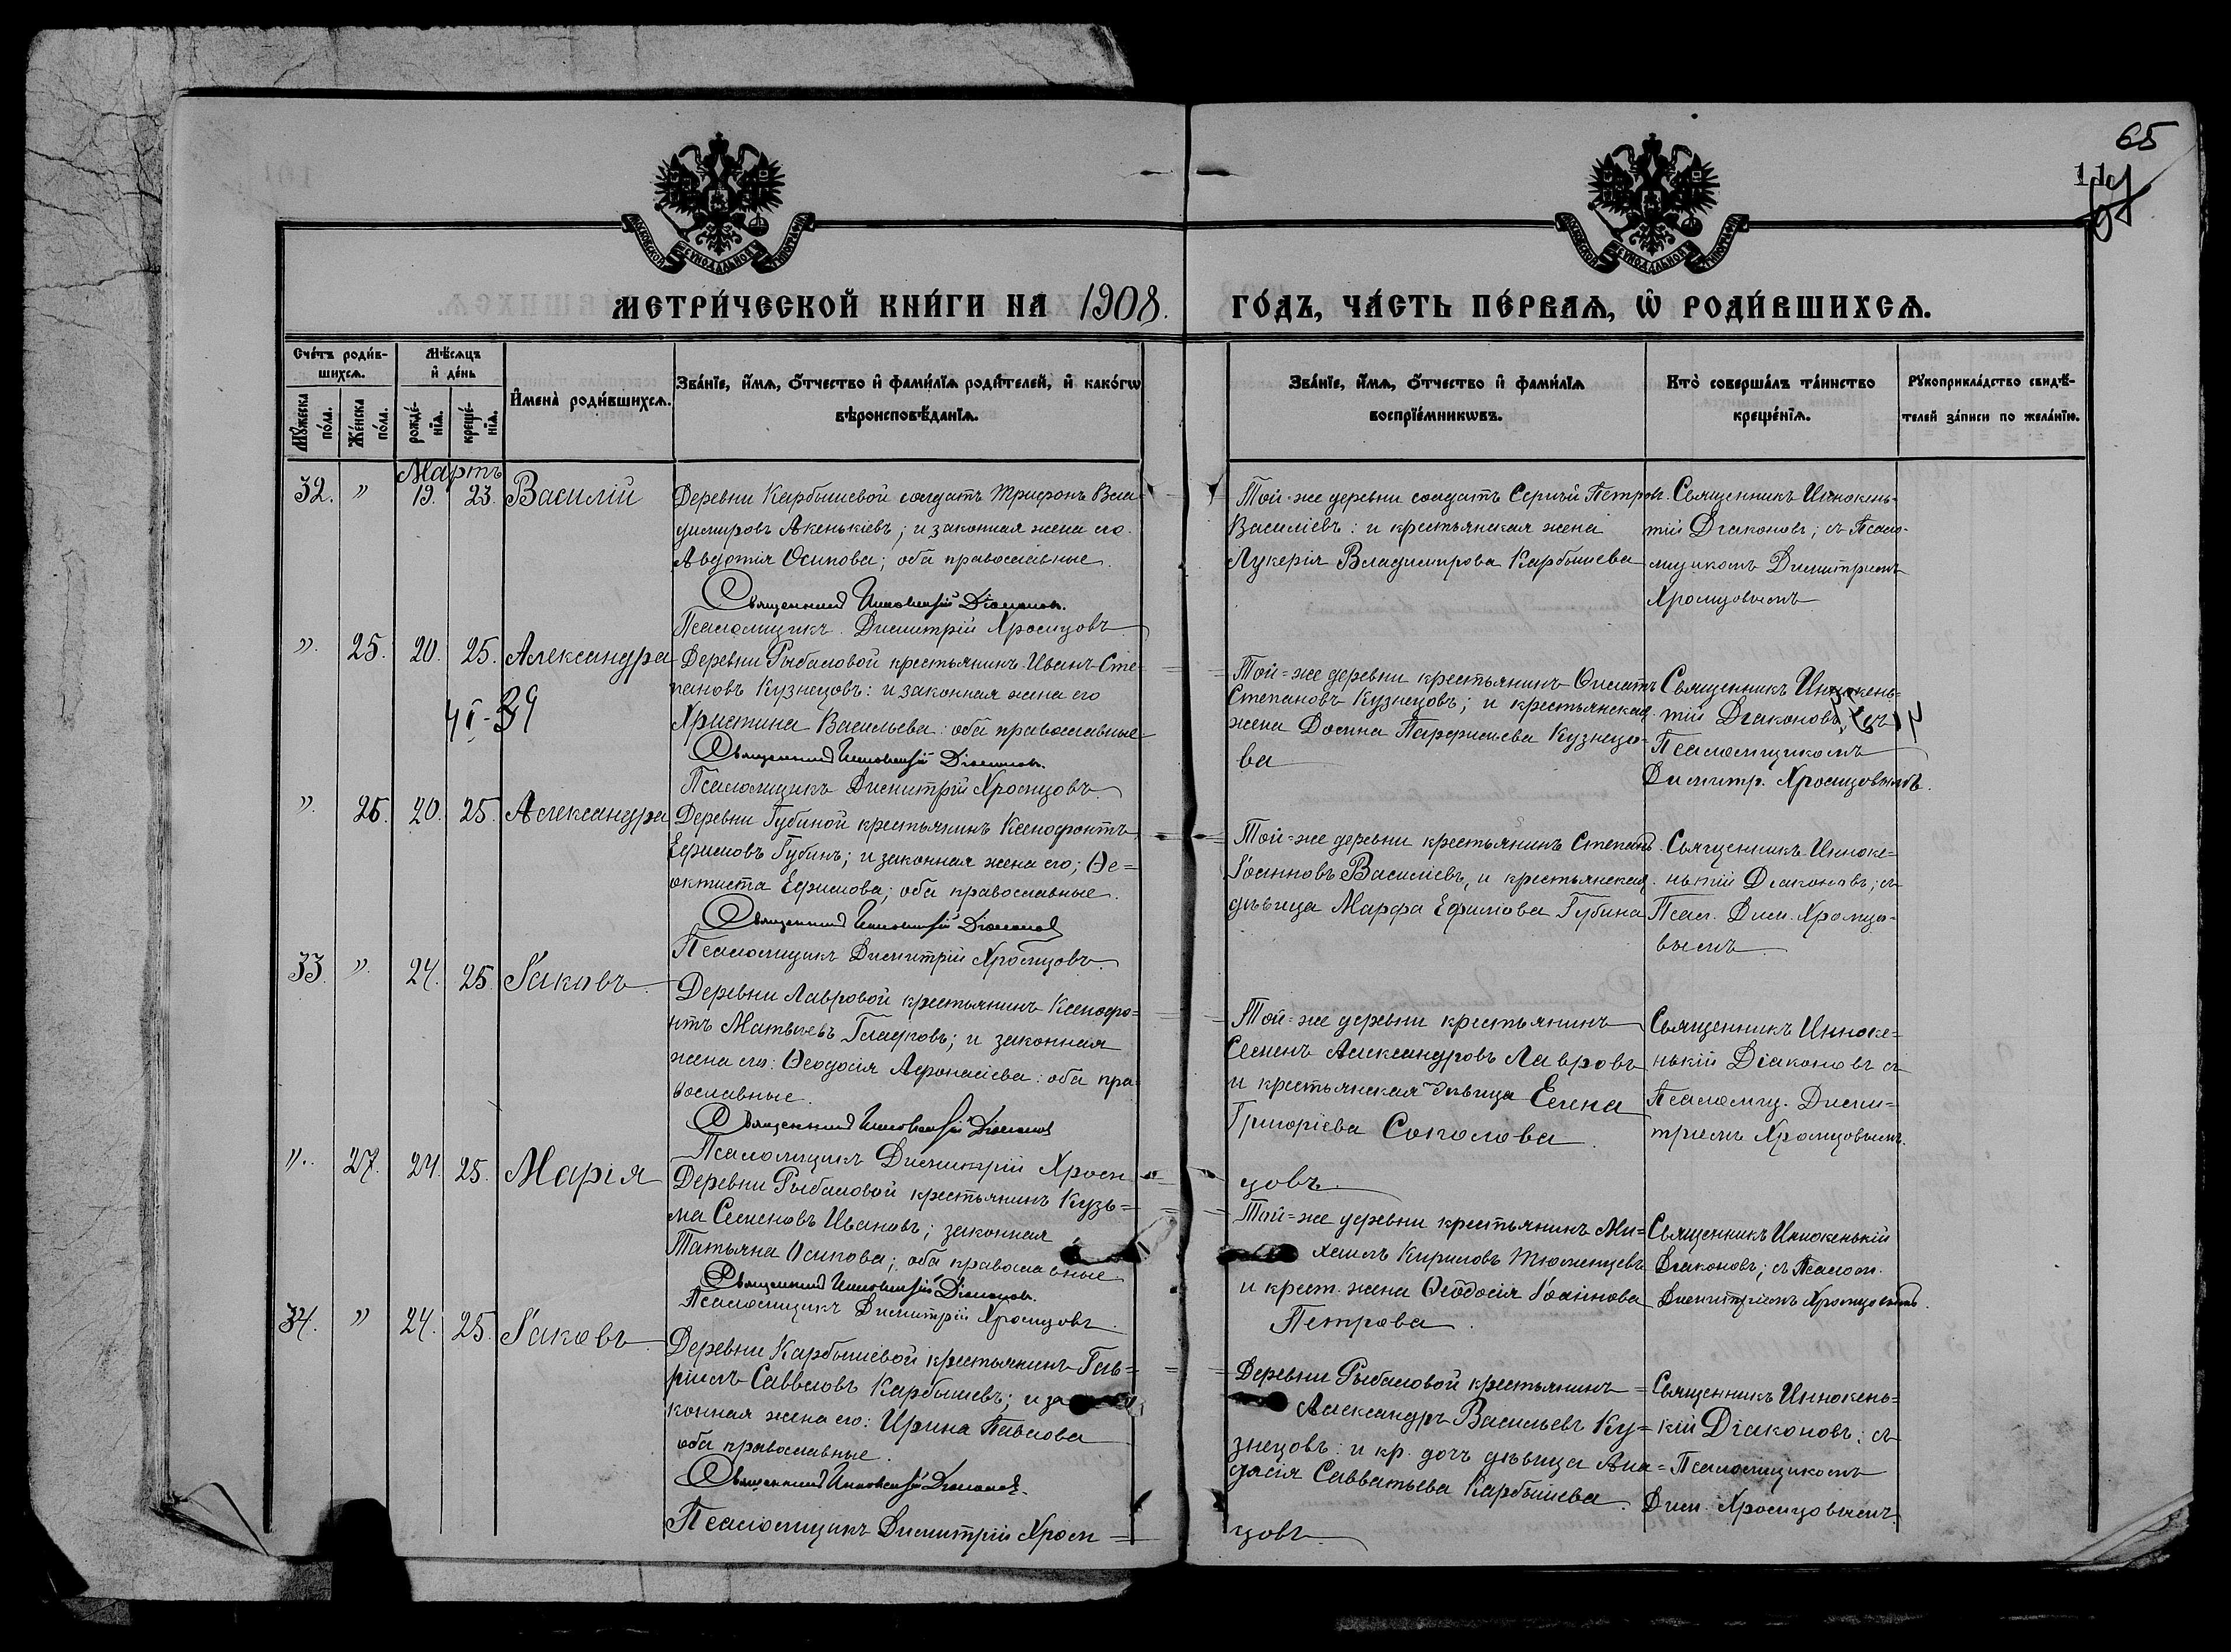 65
МЕТРИ́ЧЕСКОЙ КНИ́ГИ НА 1908.
ГО́ДЪ, ЧА́СТЬ ПЕ́РВАЯ, Ѡ РОДИ́ВШИХСЯ.
Сче́тъ роди́в-
шихся.
Му́жеска
по́ла.
Же́нска
по́ла.
Мѣ́сяцъ
и де́нь
рожде́-
нїя.
креще́-
нїя.
Имена̀ роди́вшихся.
Зва́нїе, и́мя, ѻ́тчество и фами́лїя роди́телей, и како́гѡ
вѣроисповѣ́данїя.
Зва́нїе, и́мя, ѻ́тчество и фами́лїя
воспрїе́мникѡвъ.
Кто̀ соверша́лъ та́инство
креще́нїя.
Рꙋкоприкла́дство свидѣ́-
телей за́писи по жела́нїю.
Мартъ
32. " 19. 23. Василій
Деревни Карбышевой солдатъ Трифонъ Вла-
димировъ Акенькіевъ; и законная жена его
Авдотія Осипова; оба православные.
Священникъ Иннокентій Діаконовъ.
Псаломщикъ Димитрій Хромцовъ
Той-же деревни солдатъ Сергѣй Петровъ
Василіевъ: и крестьянская жена
Лукерія Владимирова Карбышева
Священникъ Иннокень-
тій Діаконовъ; съ Псало-
мщикомъ Димитріемъ
Хромцовымъ
" 25. 20. 25. Александра
Деревни Рыбаловой крестьянинъ Иванъ Сте-
пановъ Кузнецовъ: и законная жена его
Христина Васильева: оба православные
Священникъ Иннокентій Діаконовъ.
Псаломщикъ Димитрій Хромцовъ
Той=же деревни крестьянинъ
Степановъ Кузнецовъ; и крестьянская
жена Домна Парфильева Кузнецо-
ва
Священникъ Иннокень=
тій Діаконовъ, съ
Псаломщикомъ
Димитр. Хромцовымъ.
" 26. 20. 25. Александра
Деревни Губиной крестьянинъ Ксенофонтъ
Ефимовъ Губинъ; и законная жена его; Ѳе=
октиста Ефимова; оба православные.
Священникъ Иннокентій Діаконовъ
Псаломщикъ Димитрій Хромцовъ.
Той=же деревни крестьянинъ Степанъ
Іоанновъ Василіевъ, и крестьянская
дѣвица Марфа Ефимова Губина
Священникъ Инноке-
ньтій Діаконовъ; съ
Псал. Дим. Хромцо-
вымъ
33. " 24. 25. Іаковъ
Деревни Лавровой крестьянинъ Ксенофо=
нтъ Матвѣевъ Гладковъ; и законная
жена его: Ѳеодосія Афонасіева: оба пра-
вославные.
Священникъ Иннокентій Діаконовъ
Псаломщикъ Димитрій Хром
цовъ
Той=же деревни крестьянинъ
Семенъ Александровъ Лавровъ
и крестьянская дѣвица Елена
Григоріева Соколова.
Священникъ Инноке=
нькій Діаконовъ съ
Псаломщ. Дими=
тріемъ Хромцовымъ.
" 27. 24. 25. Марія
Деревни Рыбаловой крестьянинъ Кузь=
ма Семеновъ Ивановъ; законная
Татьяна Осипова; оба православные
Священникъ Иннокентій Діаконовъ.
Псаломщикъ Димитрій Хромцовъ
Той=же деревни крестьянинъ Ми=
хаилъ Кириловъ Тюменцевъ
и крест. жена Ѳеодосія Іоаннова
Петрова.
Священникъ Иннокенькій
Діаконовъ; съ Псалом.
Димитріемъ Хромцовымъ.
34. " 24. 25. Іаковъ
Деревни Карбышевой крестьянинъ Гав=
ріилъ Саввеловъ Карбышевъ; и за
конная жена его: Ирина Павлова
оба православные.
Священникъ Иннокентій Діаконовъ.
Псаломщикъ Димитрій Хром=
цовъ
Деревни Рыбаловой крестьянинъ
Александръ Васильевъ Ку=
знецовъ: и кр. дочь дѣвица
Савватьева Карбышева.
Священникъ Иннокень=
кій Діаконовъ: съ
Псаломщикомъ
Дим. Хромцовымъ